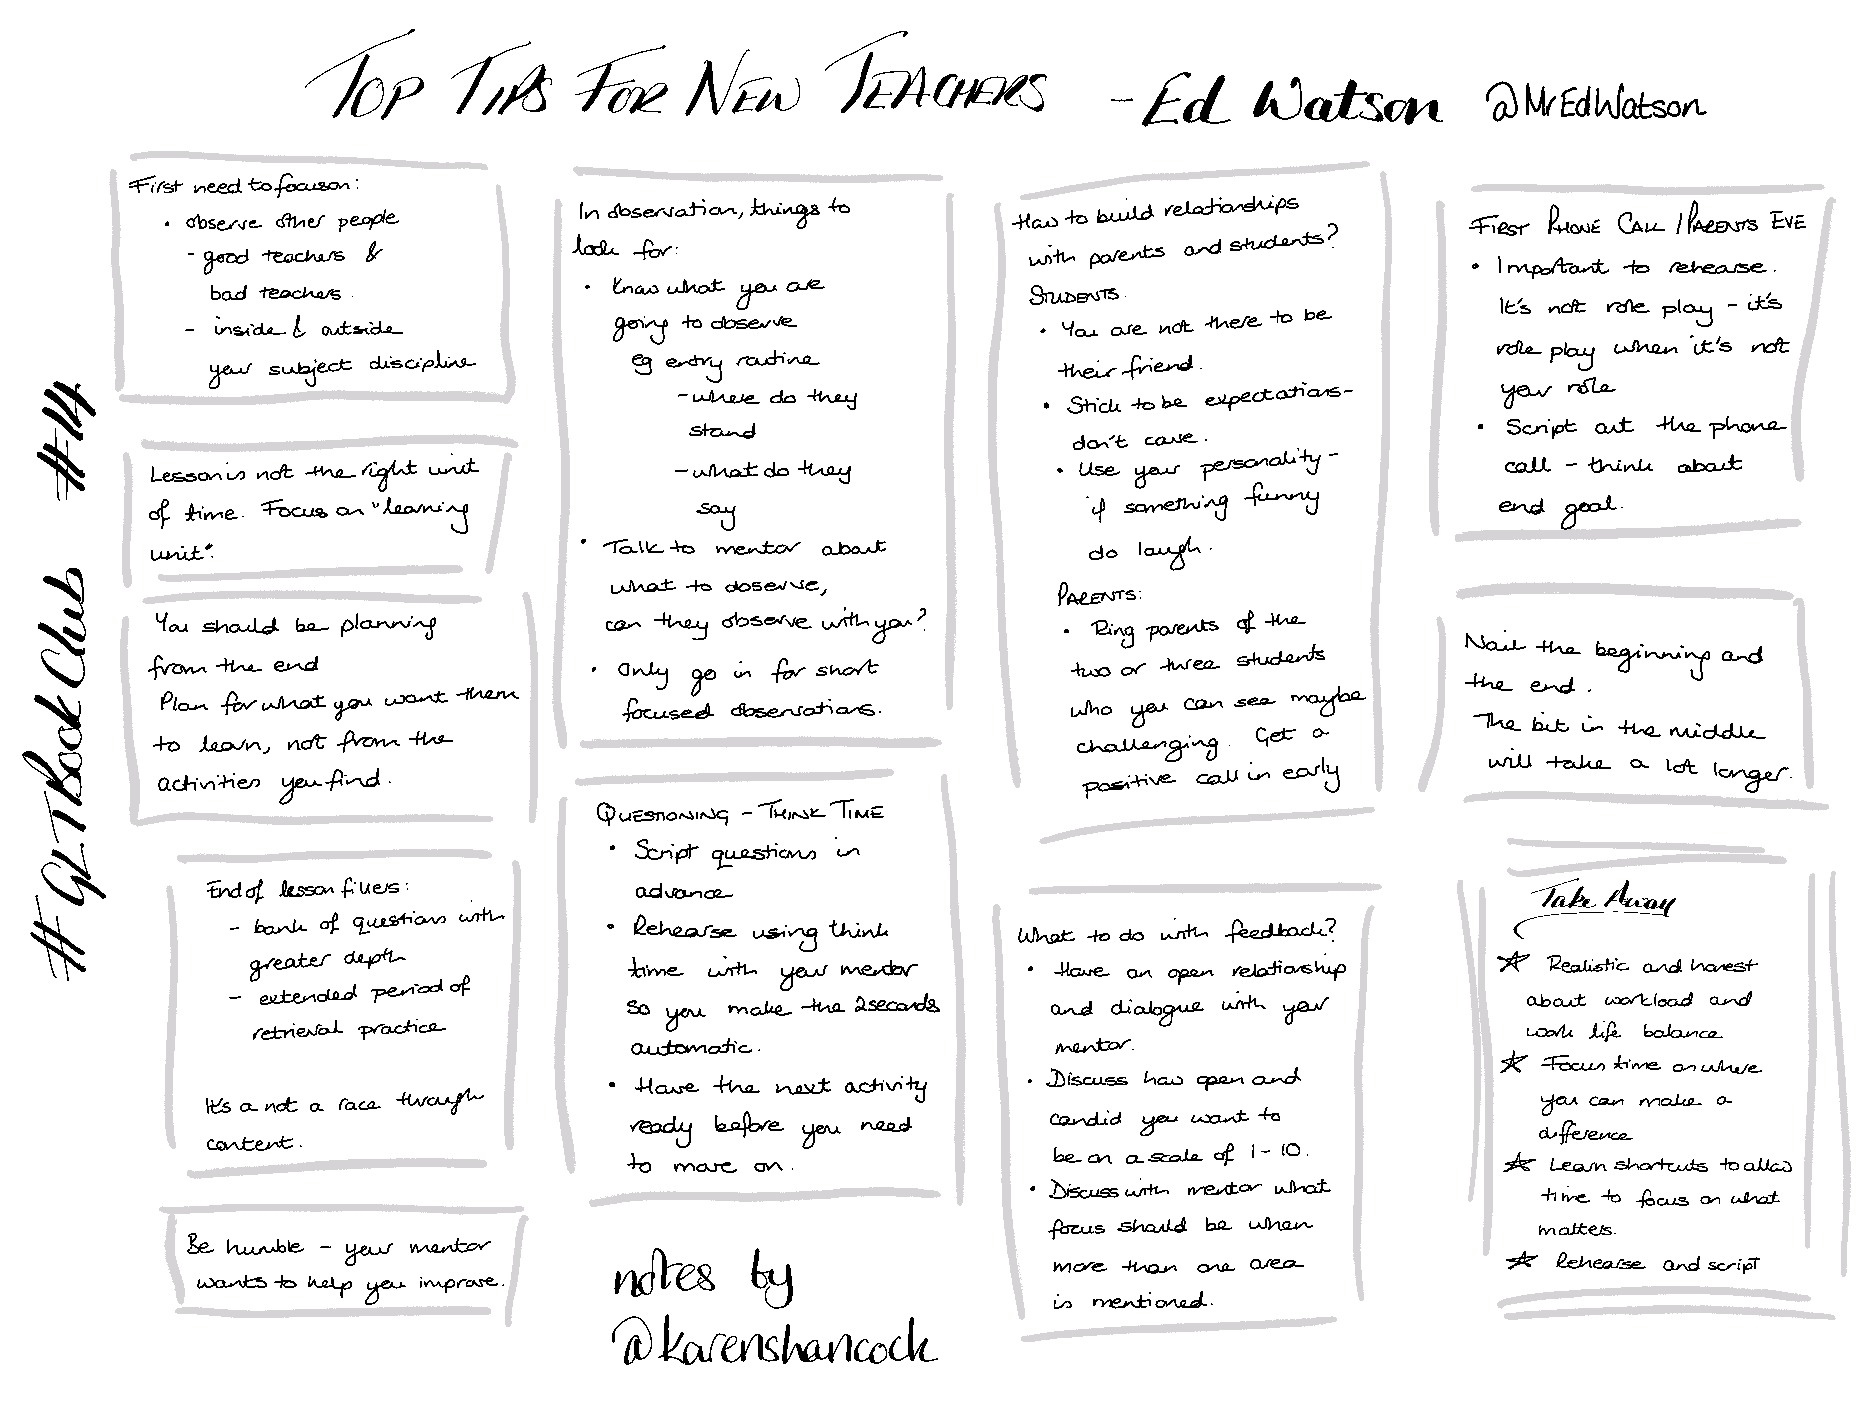 TOP TIPS FOR NEW TEACHERS - Ed Watson @MrEdWatson
#GLTBookClub #14
First need to focus on:
• observe other people
- good teachers &
bad teachers.
- inside & outside
your subject discipline
Lesson is not the right unit
of time. Focus on "learning
unit".
You should be planning
from the end
Plan for what you want them
to learn, not from the
activities you find.
End of lesson fillers:
- bank of questions with
greater depth
- extended period of
retrieval practice
It's a not a race through
content.
Be humble - your mentor
wants to help you improve.
In observation, things to
look for:
• Know what you are
going to observe
eg entry routine
- where do they
stand
- what do they
say
• Talk to mentor about
what to observe,
can they observe with you?
• Only go in for short
focused observations.
QUESTIONING - THINK TIME
• Script questions in
advance
• Rehearse using think
time with your mentor
so you make the 2seconds
automatic.
• Have the next activity
ready before you need
to move on.
notes by
@karenshancock
How to build relationships
with parents and students?
STUDENTS.
• You are not there to be
their friend.
• Stick to be expectations-
don't cave.
• Use your personality -
if something funny
do laugh.
PARENTS:
• Ring parents of the
two or three students
who you can see maybe
challenging. Get a
positive call in early
What to do with feedback?
• Have an open relationship
and dialogue with your
mentor.
• Discuss how open and
candid you want to
be on a scale of 1-10.
• Discuss with mentor what
focus should be when
more than one area
is mentioned.
FIRST PHONE CALL / PARENTS EVE
• Important to rehearse.
It's not role play - it's
role play when it's not
your role
• Script out the phone
call - think about
end goal.
Nail the beginning and
the end.
The bit in the middle
will take a lot longer.
Take Away
☆ Realistic and honest
about workload and
work life balance
☆ Focus time on where
you can make a
difference
☆ Learn shortcuts to allow
time to focus on what
matters.
☆ Rehearse and script